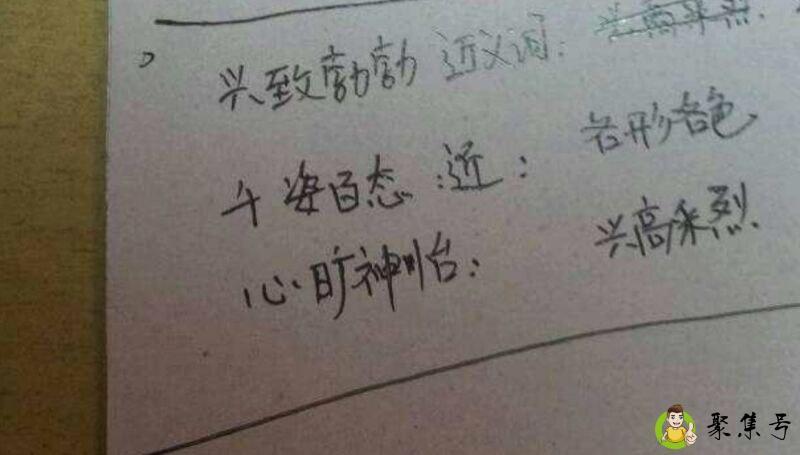 兴致勃勃 近义词: 兴高采烈.
千姿百态 近: 各形各色
心旷神怡: 兴高采烈.
聚集号